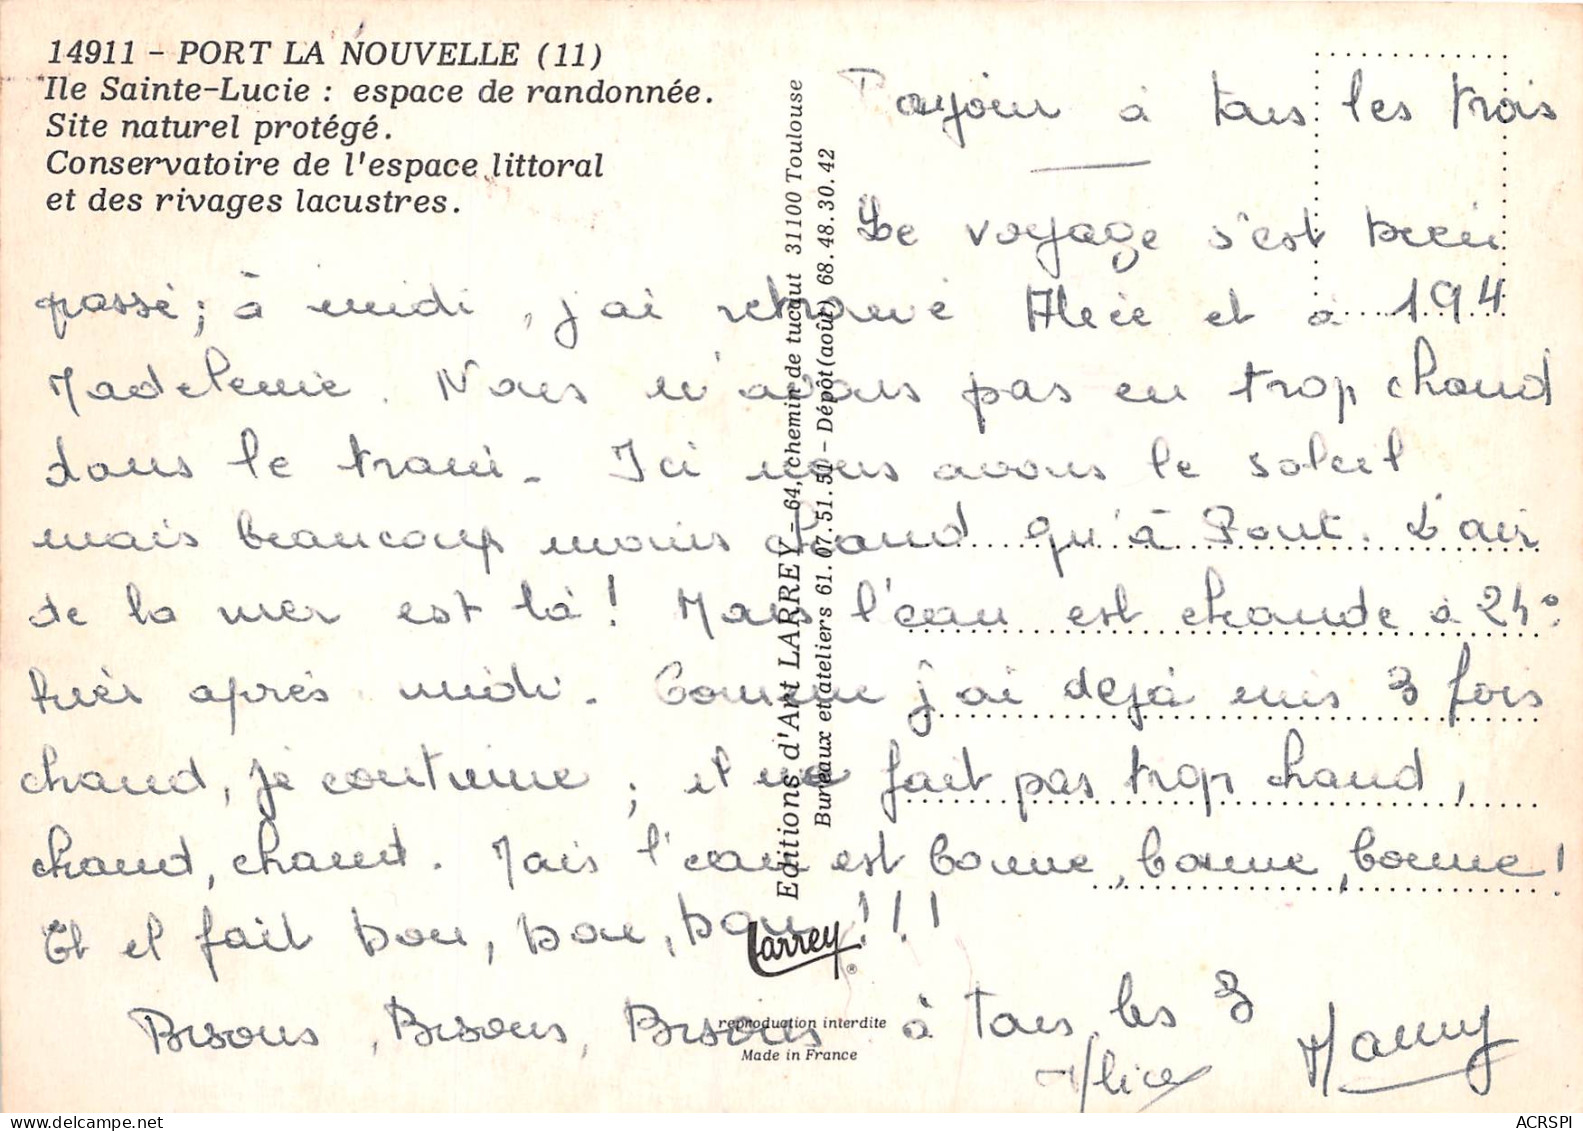 14911 - PORT LA NOUVELLE (11)
Ile Sainte-Lucie : espace de randonnée.
Site naturel protégé.
Conservatoire de l'espace littoral
et des rivages lacustres.
à tous les trois
Le voyage s'est bien
passé ; à midi, j'ai retrouvé Alice et à 19H
Madeleine. Nous n'avons pas eu trop chaud
dans le train. Ici nous avons le soleil
mais beaucoup moins chaud qu'à Pont. L'air
de la mer est là ! Mais l'eau est chaude à 24°
hier après midi. Comme j'ai déjà mis 3 fois
chaud, je continue ; il ne fait pas trop chaud,
chaud, chaud. Mais l'eau est bonne, bonne, bonne !
Et il fait bon, bon, bon !!!
Bisous, Bisous, Bisous à tous les 3
Alice Mamy
Editions d'Art LARREY - 64, chemin de tucaut 31100 Toulouse
Bureaux et ateliers 61.07.51.51 - Dépôt (août) 68.48.30.42
Larrey ®
reproduction interdite
Made in France
ACRSPI